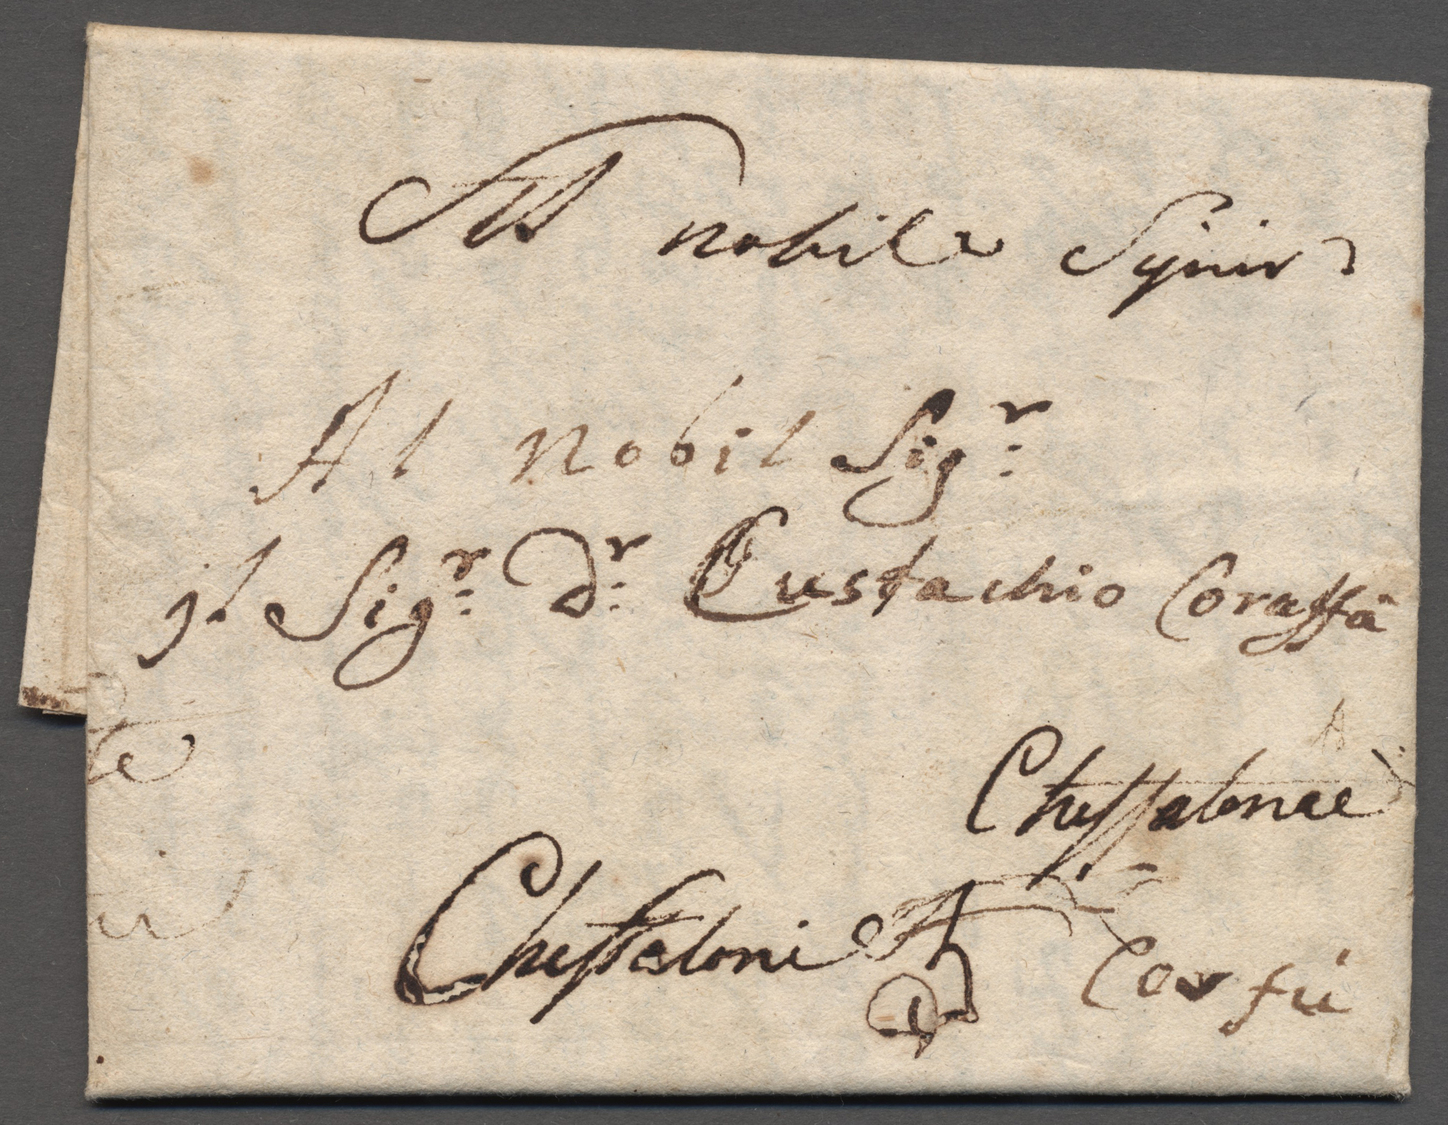 Al nobile Signir
Al Nobil Sigr:
jl Sigr: Dr: Eustachio Coraffà
Cheffalonae
Cheffaloni A
Corfù